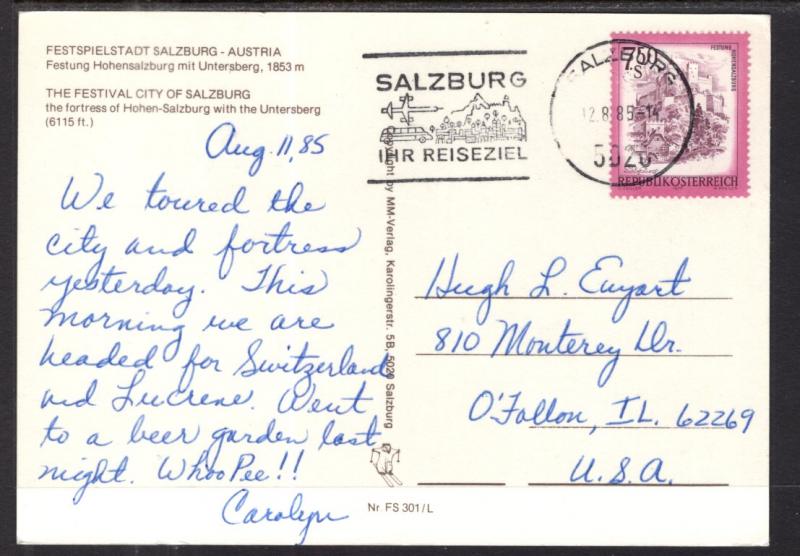 FESTSPIELSTADT SALZBURG - AUSTRIA
Festung Hohensalzburg mit Untersberg, 1853 m
THE FESTIVAL CITY OF SALZBURG
the fortress of Hohen-Salzburg with the Untersberg
(6115 ft.)
Aug. 11, 85
We toured the
city and fortress
yesterday. This
morning we are
headed for Switzerland
and Lucrene. Went
to a beer garden last
night. WhooPee!!
Carolyn
Copyright by MM-Verlag, Karolingerstr. 5B, 5020 Salzburg
Nr. FS 301/L
SALZBURG
IHR REISEZIEL
SALZBURG
12.8.85-14
5020
7.50
S
FESTUNG
HOHENSALZBURG
REPUBLIK ÖSTERREICH
Hugh L. Enyart
810 Monterey Dr.
O'Fallon, IL. 62269
U.S.A.